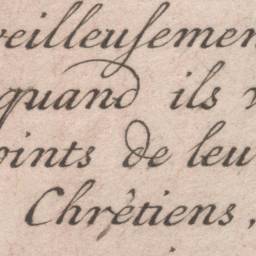 veilleusemen
quand ils v
oints de leu
Chrêtiens,